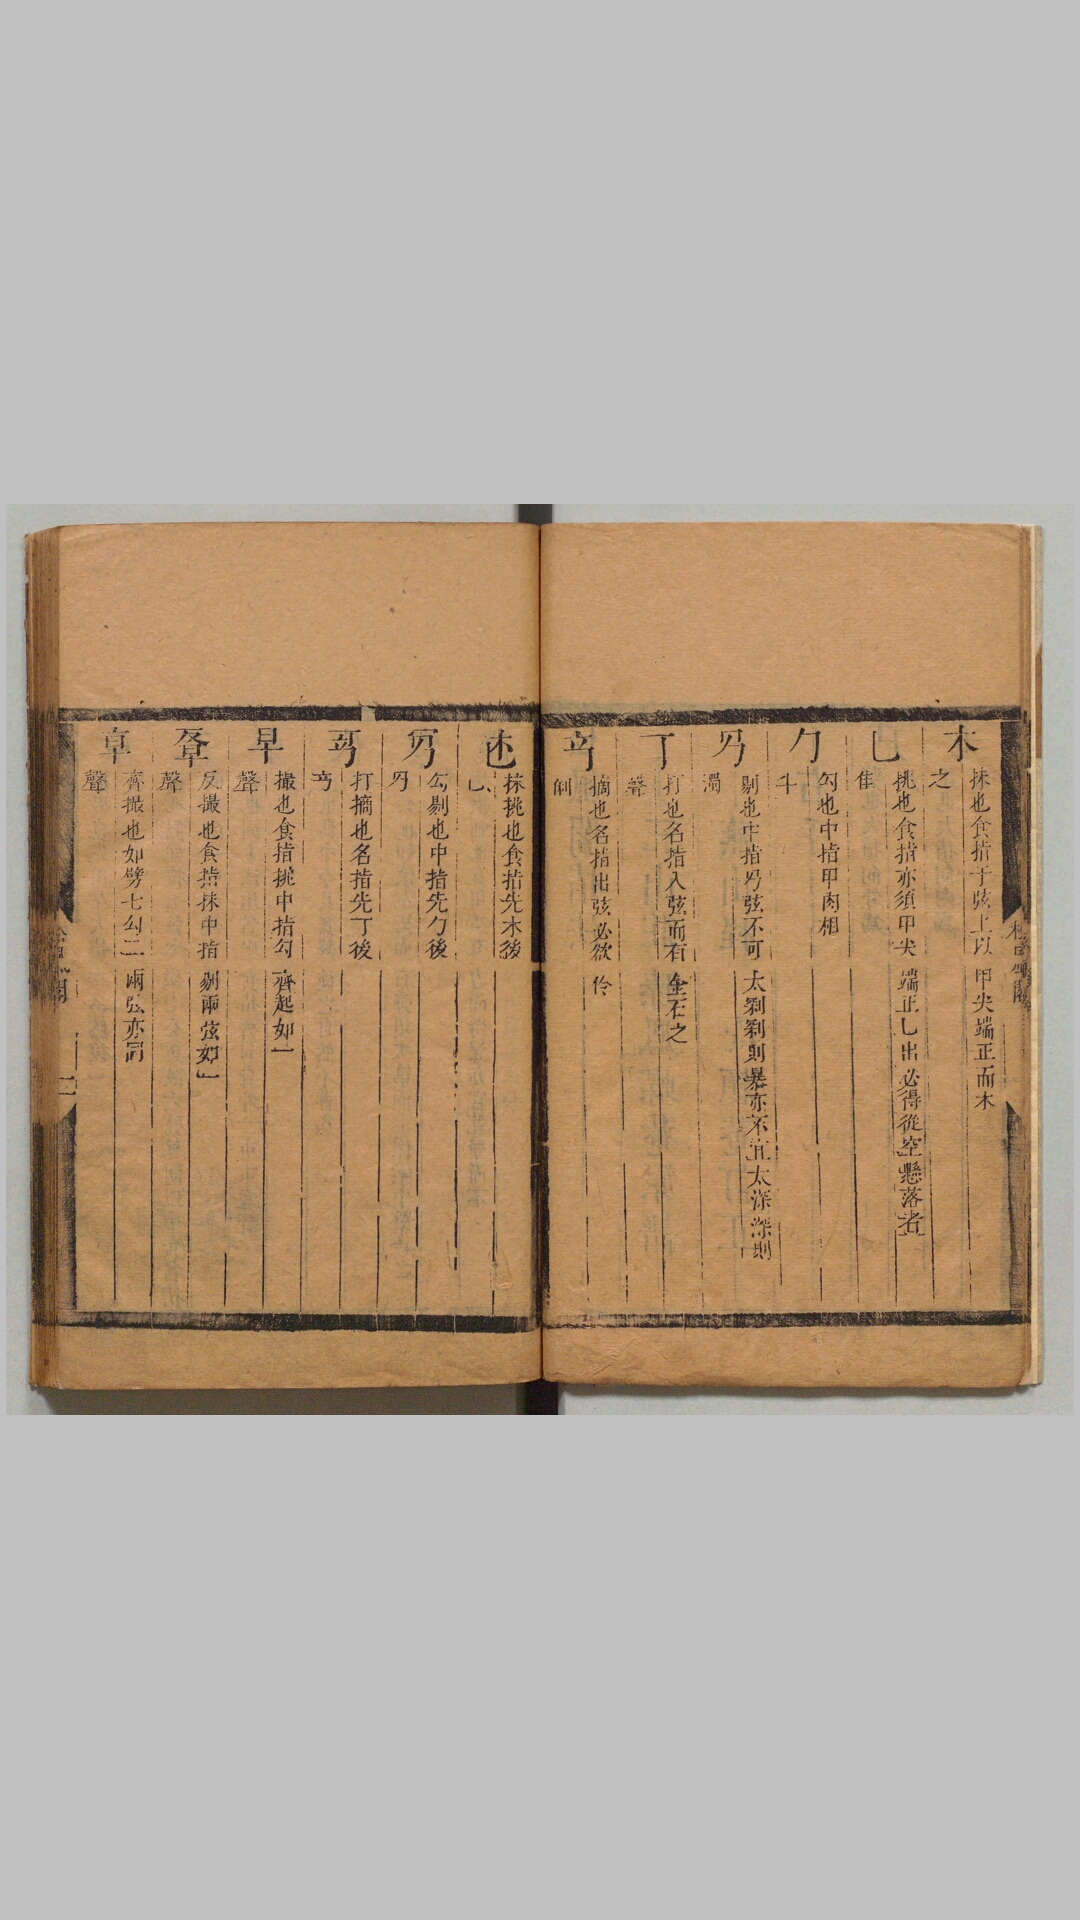 木
抹也食指于弦上以甲尖端正而木
之
乚
挑也食指亦須甲尖端正乚出必得從空懸落者
佳
勹
勾也中指甲肉相
半
剔也中指弦不可太剝剝則暴亦不宜太深深則
濁
丁
打也名指入弦而有金石之
聲
摘也名指出弦必欲伶
俐
抹挑也食指先木後
乚
勾剔也中指先勹後
打摘也名指先丁後
早
撮也食指挑中指勾齊起如一
聲
反撮也食指抹中指剔兩弦如一
聲
齊撮也如劈七勾二兩弦亦同
聲